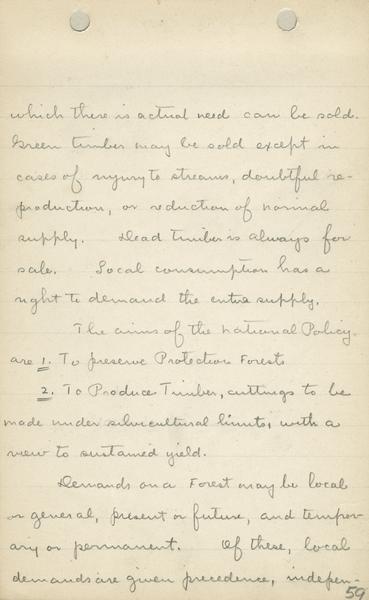 which there is actual need can be sold.
Green timber may be sold except in
cases of injury to streams, doubtful re-
production, or reduction of normal
supply. Dead timber is always for
sale. Local consumption has a
right to demand the entire supply.
The aims of the National Policy
are 1. To preserve Protection Forests
2. To Produce Timber, cuttings to be
made under silvicultural limits, with a
view to sustained yield.
Demands on a Forest may be local
or general, present or future, and tempor-
ary or permanent. Of these, local
demands are given precedence, indepen-
59